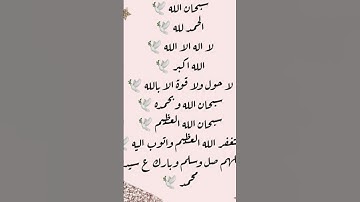 سبحان الله 🕊
الحمد لله 🕊
لا اله الا الله 🕊
الله اكبر 🕊
لا حول ولا قوة الا بالله 🕊
سبحان الله وبحمده 🕊
سبحان الله العظيم 🕊
تغفر الله العظيم واتوب اليه 🕊
لهم صل وسلم وبارك ع سيد
محمد 🕊